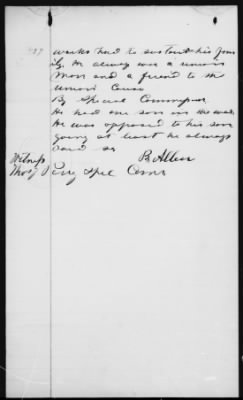 works had to sustain his fam
ily. He always was a union
Man and a friend to the
Union Cause
By Special Commr
He had one son in the war
He was opposed to his son
going at least he always
said so
B. Allen
Witness
Thos J Perry Spcl Comr